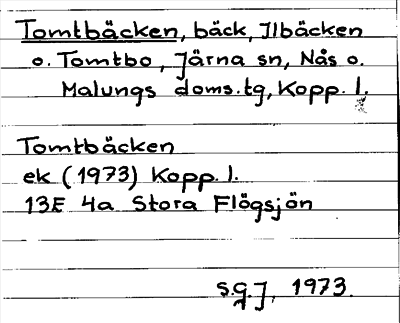 Tomtbäcken, bäck, Ilbäcken
o. Tomtbo, Järna sn, Nås o.
Malungs doms.tg, Kopp. l.
Tomtbäcken
ek (1973) Kopp. l.
13E 4a Stora Flögsjön
S.G.J, 1973.